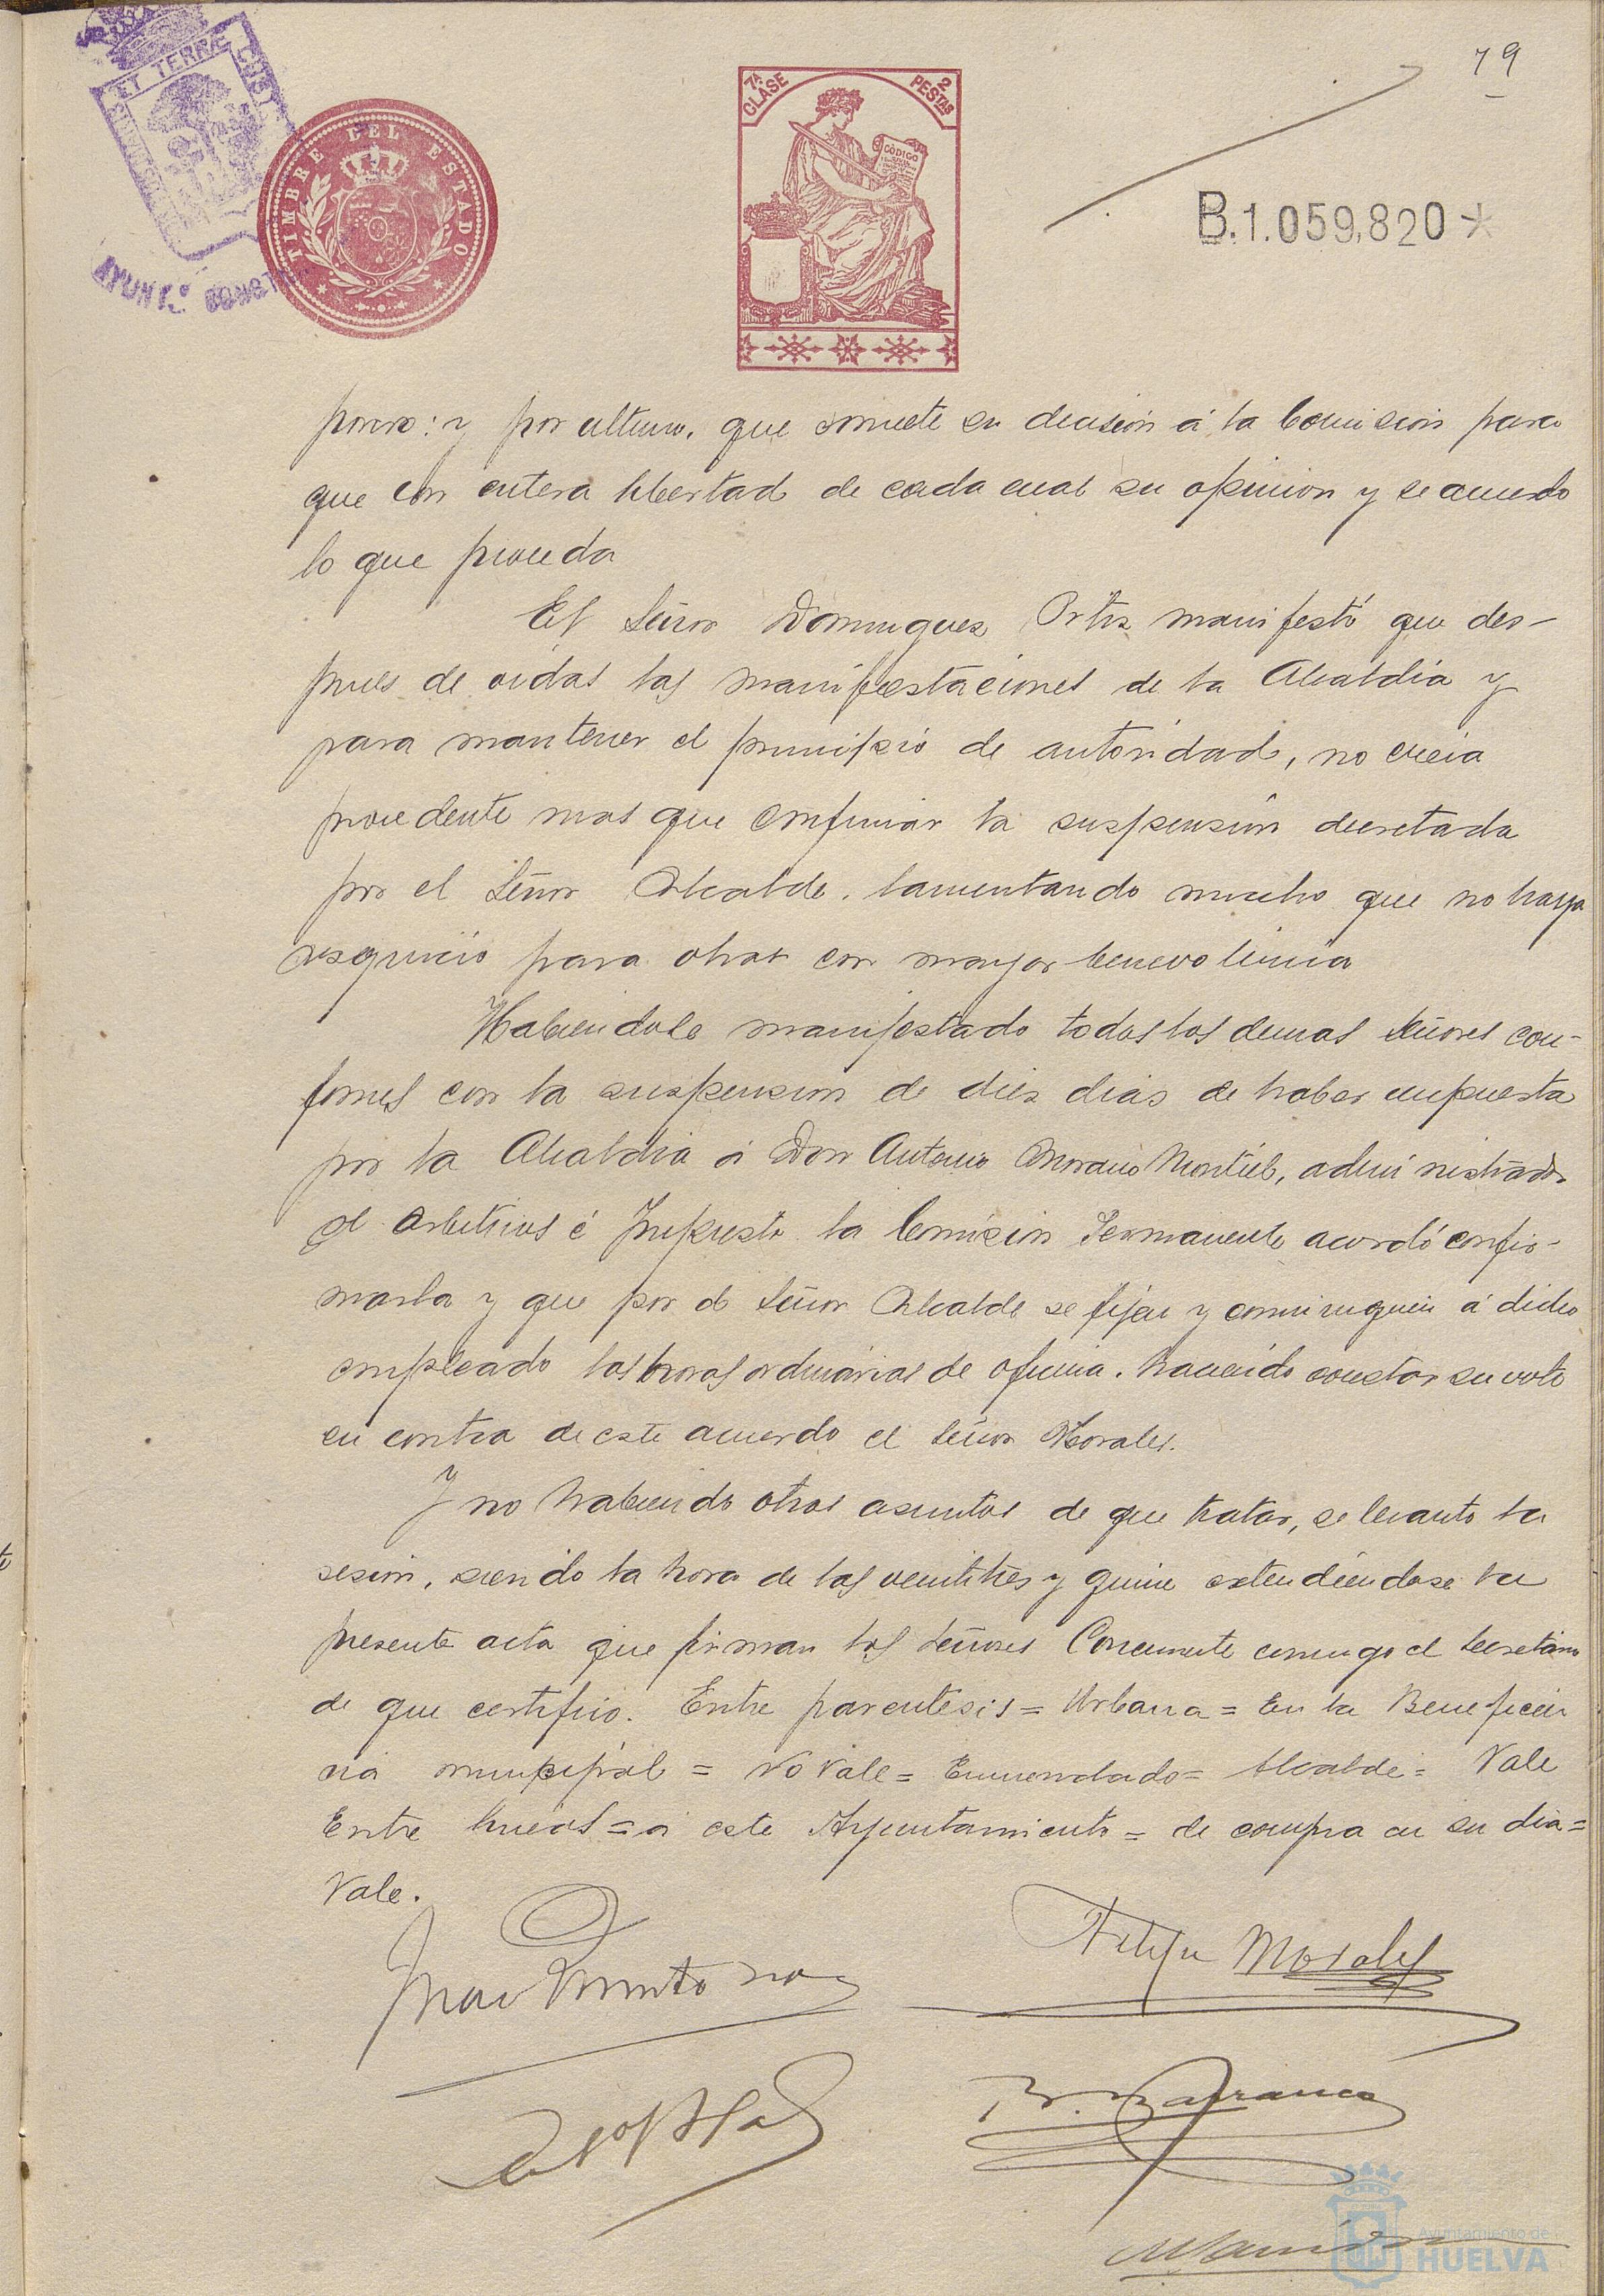 79
ET TERRÆ CUST
AYUNT.º CONST
TIMBRE DEL ESTADO
7ª CLASE
2 PESTAS
CÓDIGO
B.1.059,820*
y por ultimo, que somete su decision á la Comision para
que con entera libertad de cada cual su opinion y se acuerde
lo que proceda
El Señor Dominguez Ortiz manifestó que des-
pues de oidas las manifestaciones de la Alcaldia y
para mantener el principio de autoridad, no creia
procedente mas que confirmar la suspension decretada
por el Señor Alcalde, lamentando mucho que no haya
resquicio para obrar con mayor benevolencia
Habiendole manifestado todos los demas Señores con-
formes con la suspension de diez dias de haber impuesta
por la Alcaldia á Don Antonio Montiel, administrador
de Arbitrios é Impuesto la Comision Permanente acordó confir-
marla y que por el Señor Alcalde se fijen y comuniquen á dicho
empleado las horas ordinarias de oficina, haciendo constar su voto
en contra de este acuerdo el Señor Morales.
Y no habiendo otros asuntos de que tratar, se levanto la
sesion, siendo la hora de las veintitres y quince extendiendose la
presente acta que firman los Señores Concurrente conmigo el Secretario
de que certifico. Entre parentesis = Urbana = En la Beneficen
cia municipal = No vale = Enmendado = Alcalde = Vale
Entre lineas = á este Ayuntamiento = de compra en su dia =
Vale.
Felipe Morales
Ayuntamiento de
HUELVA